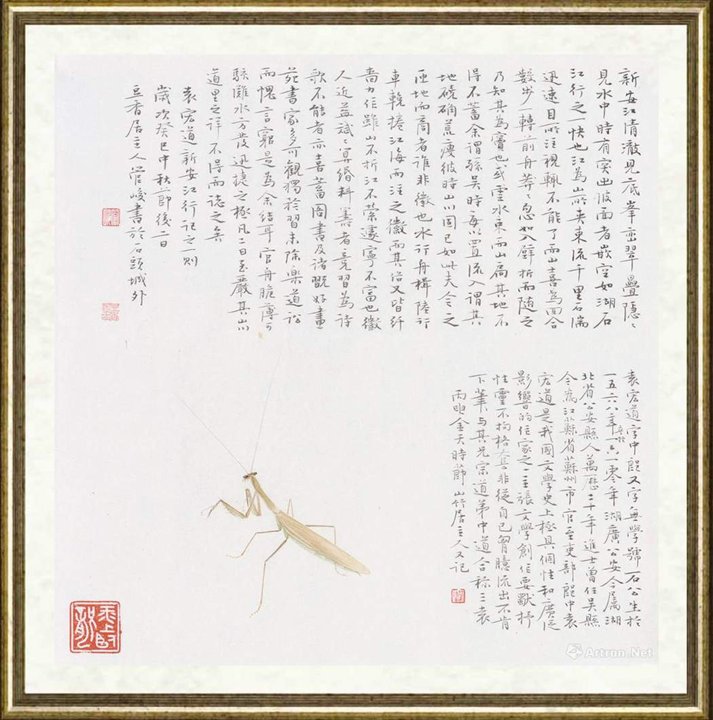 新安江清澈見底峯巒翠疊隱隱
見水中時有突出波面者嵌空如湖石
江行之一快也江為山所夾東流千里石湍
迅速目所注視輒不能了而山喜為回合
數步一轉前舟莽莽忽如入壁折而隨之
乃知其為竇也或雲水東而山扃其地不
得不蓄余謂孫吳時每以置流入謂其
地磽确荒瘦彼時山川固已如此矣今之
匝地而商者誰非徽也水行舟楫陸行
車輓捲江海而注之徽而其俗又皆纤
嗇力作雖山不折江不縈遽寧不富也徽
人近益斌斌算緡料籌者竞習為詩
歌不能者亦喜蓄圖書及諸玩好畫
苑書家多可觀獨於習未除樂道訟
而愧言窮是為余結耳官舟脆薄可
駭灘水方發迅捷之極凡二日至嚴其山川
道里之詳不得而誌之矣
袁宏道新安江行記之一則
歲次癸巳中秋節後二日
豆香居主人管峻書於石頭城外
袁宏道字中郎又字無學號石公生於
一五六八年卒於一六一零年湖廣公安今屬湖
北省公安縣人萬歷二十年進士曾任吳縣
令為江蘇省蘇州市官至吏部郎中袁
宏道是我國文學史上極具個性和廣泛
影響的作家之一主張文學創作要獻抒
性靈不拘格套非從自己胸臆流出不肯
下筆與其兄宗道弟中道合称三袁
丙申金天時節山竹居主人又記
Artron.Net